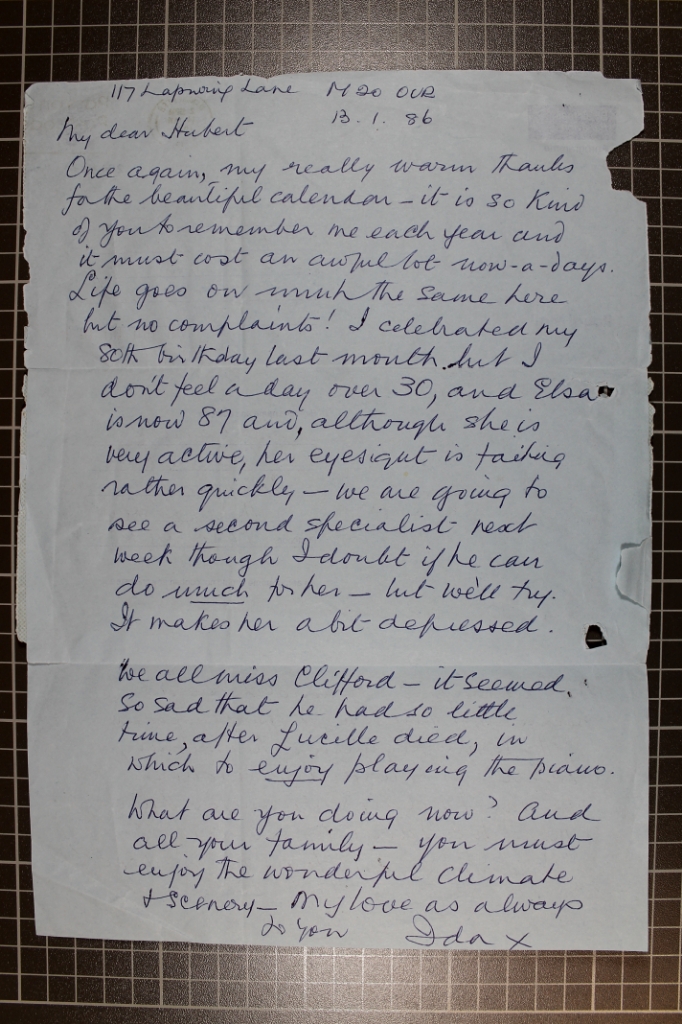 117 Lapwing Lane M20 0UR
13.1.86
My dear Hubert
Once again, my really warm thanks
for the beautiful calendar – it is so kind
of you to remember me each year and
it must cost an awful lot now-a-days.
Life goes on much the same here
but no complaints! I celebrated my
80th birthday last month but I
don't feel a day over 30, and Elsa
is now 87 and, although she is
very active, her eyesight is failing
rather quickly – we are going to
see a second specialist next
week though I doubt if he can
do much for her – but we'll try.
It makes her a bit depressed.
We all miss Clifford – it seemed
so sad that he had so little
time, after Lucille died, in
which to enjoy playing the piano.
What are you doing now? And
all your family – you must
enjoy the wonderful climate
+ scenery – My love as always
to you Ida x